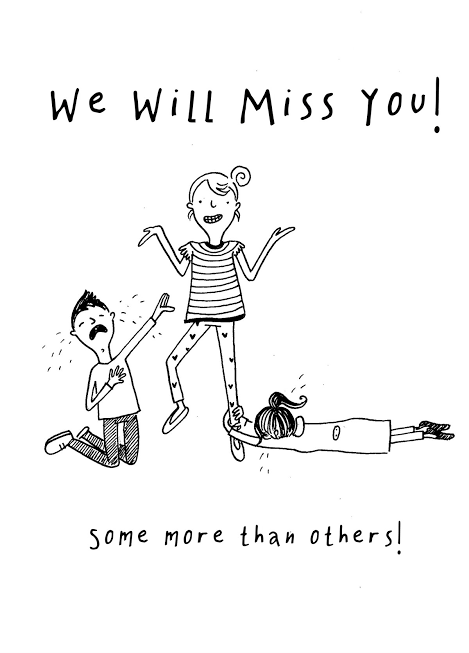 We Will Miss You!
some more than others!